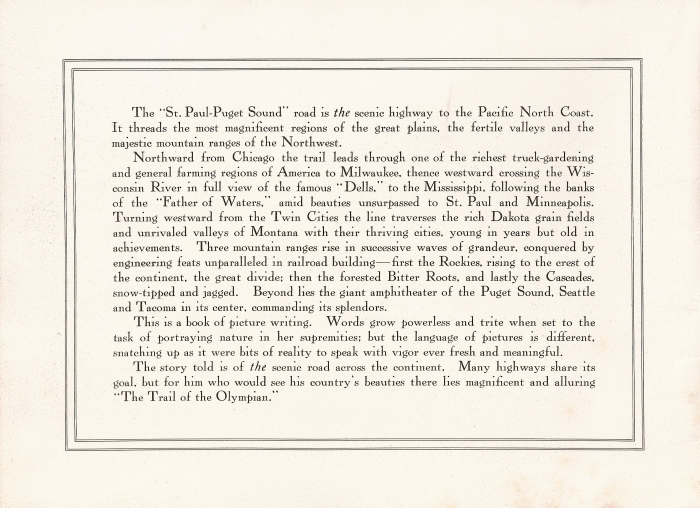 The "St. Paul-Puget Sound" road is the scenic highway to the Pacific North Coast.
It threads the most magnificent regions of the great plains, the fertile valleys and the
majestic mountain ranges of the Northwest.
Northward from Chicago the trail leads through one of the richest truck-gardening
and general farming regions of America to Milwaukee, thence westward crossing the Wis-
consin River in full view of the famous "Dells," to the Mississippi, following the banks
of the "Father of Waters," amid beauties unsurpassed to St. Paul and Minneapolis.
Turning westward from the Twin Cities the line traverses the rich Dakota grain fields
and unrivaled valleys of Montana with their thriving cities, young in years but old in
achievements. Three mountain ranges rise in successive waves of grandeur, conquered by
engineering feats unparalleled in railroad building—first the Rockies, rising to the crest of
the continent, the great divide; then the forested Bitter Roots, and lastly the Cascades,
snow-tipped and jagged. Beyond lies the giant amphitheater of the Puget Sound, Seattle
and Tacoma in its center, commanding its splendors.
This is a book of picture writing. Words grow powerless and trite when set to the
task of portraying nature in her supremities; but the language of pictures is different,
snatching up as it were bits of reality to speak with vigor ever fresh and meaningful.
The story told is of the scenic road across the continent. Many highways share its
goal, but for him who would see his country's beauties there lies magnificent and alluring
"The Trail of the Olympian."